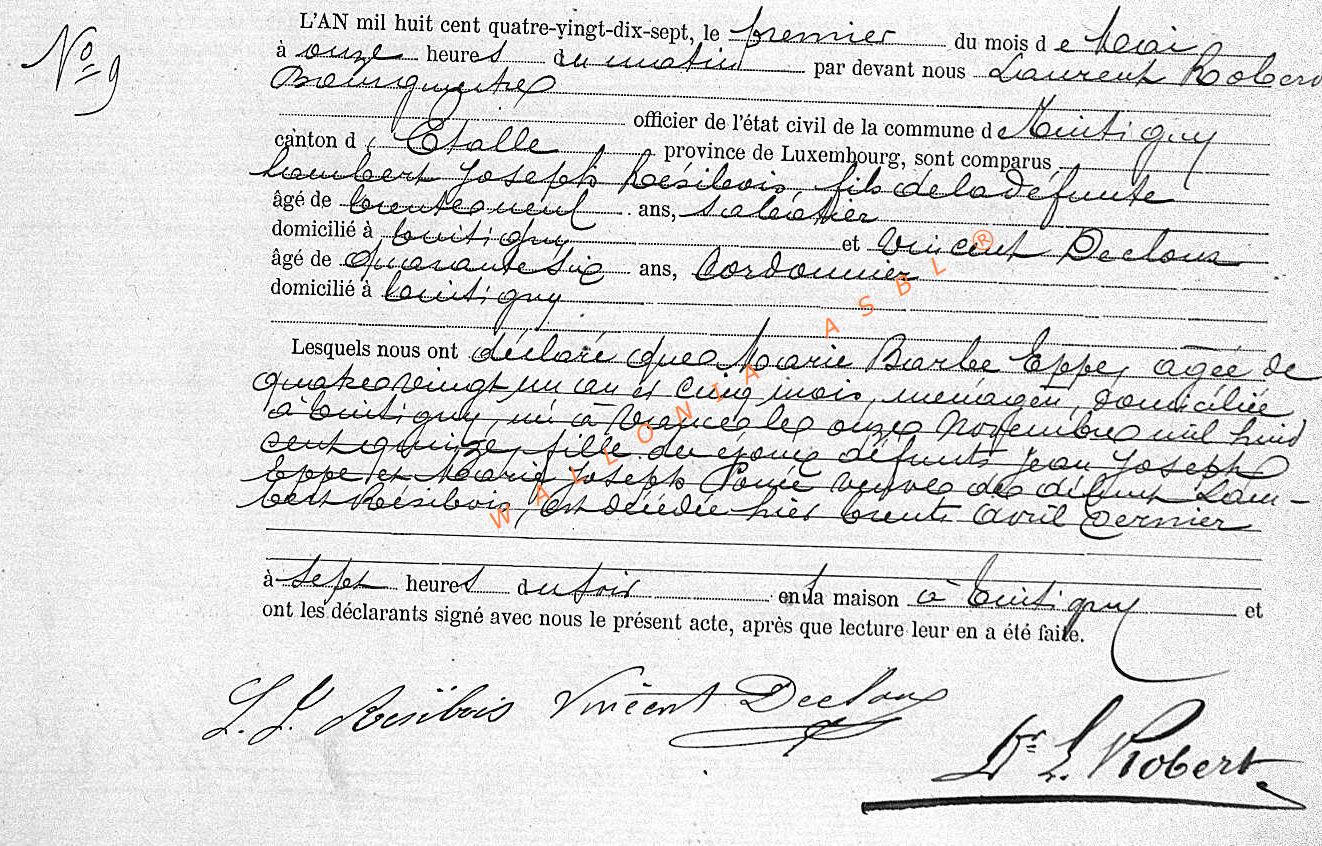 No 9
L'AN mil huit cent quatre-vingt-dix-sept, le premier du mois de Mai
à onze heures du matin par devant nous Laurent Robert
Bourgmestre
officier de l'état civil de la commune de Tintigny
canton d' Etalle province de Luxembourg, sont comparus
Lambert Joseph Résibois, fils de la défunte
âgé de trente neuf ans,
domicilié à Tintigny et Vincent Decloux
âgé de quarante six ans, Cordonnier
domicilié à Tintigny
Lesquels nous ont déclaré que Marie Barbe Eppe, agée de
quatre vingt un an et cinq mois, ménagère, domiciliée
à Tintigny, né à les onze Novembre mil huit
cent quinze, fille des époux défunts Jean Joseph
Eppe et Marie Joseph veuve de défunt Lam-
bert Résibois, est décédée hier trente avril dernier
à sept heures du soir en la maison à Tintigny et
ont les déclarants signé avec nous le présent acte, après que lecture leur en a été faite.
L. J. Résibois Vincent Decloux
Dr L. Robert
WALLONIA ASBL ®